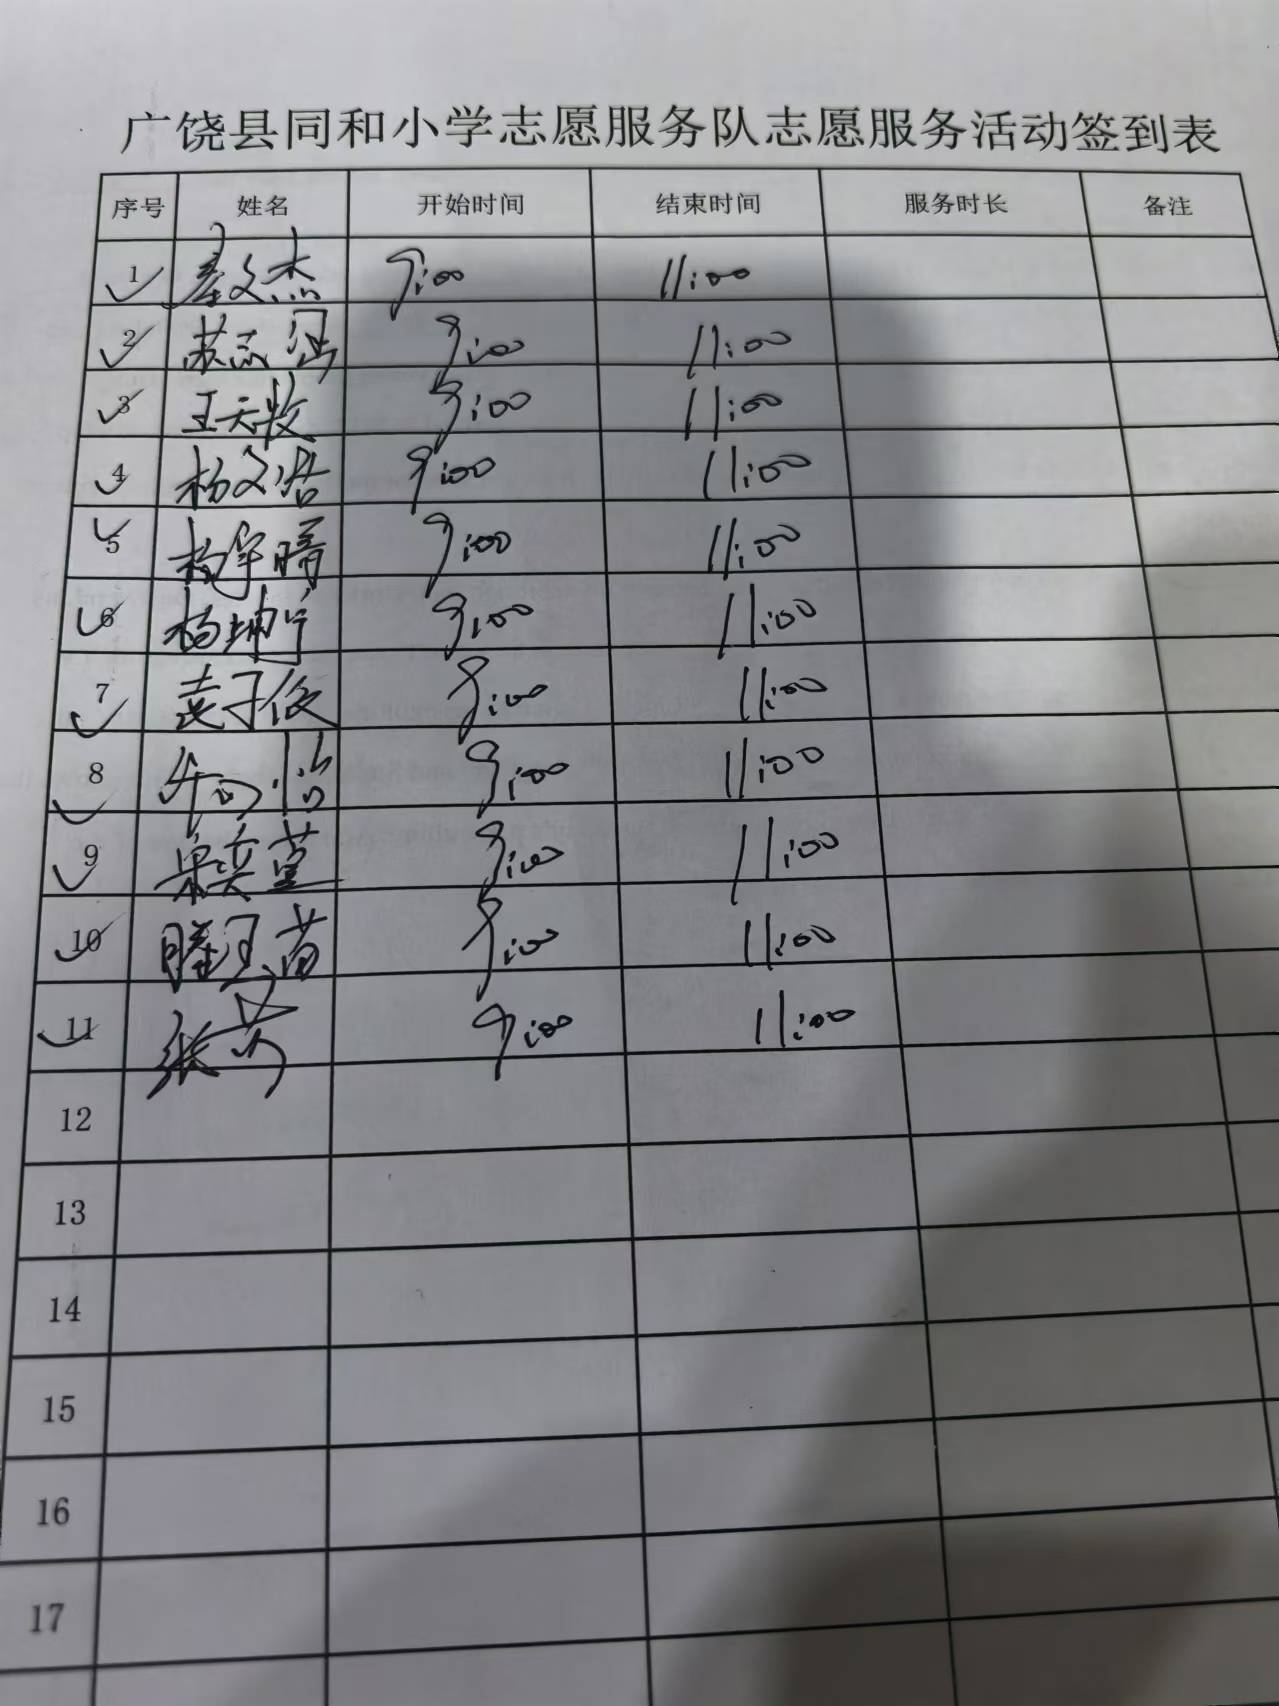 广饶县同和小学志愿服务队志愿服务活动签到表
序号 姓名 开始时间 结束时间 服务时长 备注
1 秦文杰 9:00 11:00
2 苏志涵 9:00 11:00
3 王天牧 9:00 11:00
4 杨文浩 9:00 11:00
5 杨宇晴 9:00 11:00
6 杨坤宁 9:00 11:00
7 袁子俊 9:00 11:00
8 9:00 11:00
9 梁奕萱 9:00 11:00
10 9:00 11:00
11 张芳 9:00 11:00
12
13
14
15
16
17